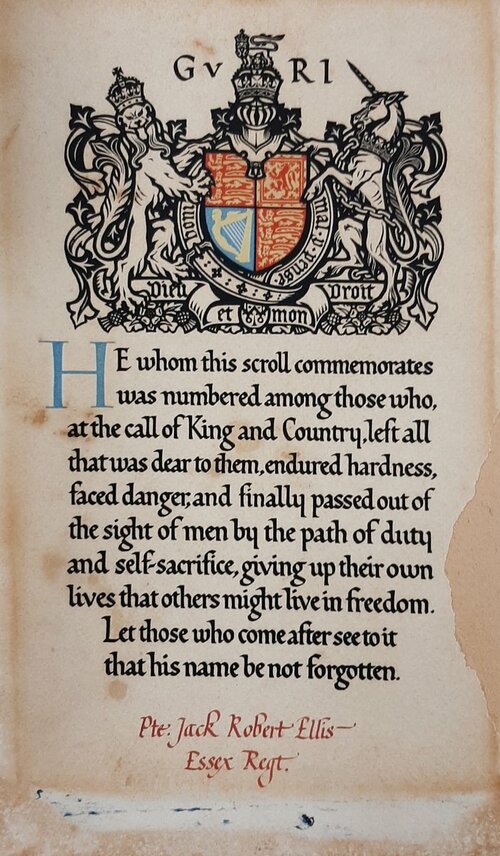 GV RI
honi soit qui mal y pense
Dieu et mon Droit
HE whom this scroll commemorates
was numbered among those who,
at the call of King and Country, left all
that was dear to them, endured hardness,
faced danger, and finally passed out of
the sight of men by the path of duty
and self-sacrifice, giving up their own
lives that others might live in freedom.
Let those who come after see to it
that his name be not forgotten.
Pte. Jack Robert Ellis
Essex Regt.